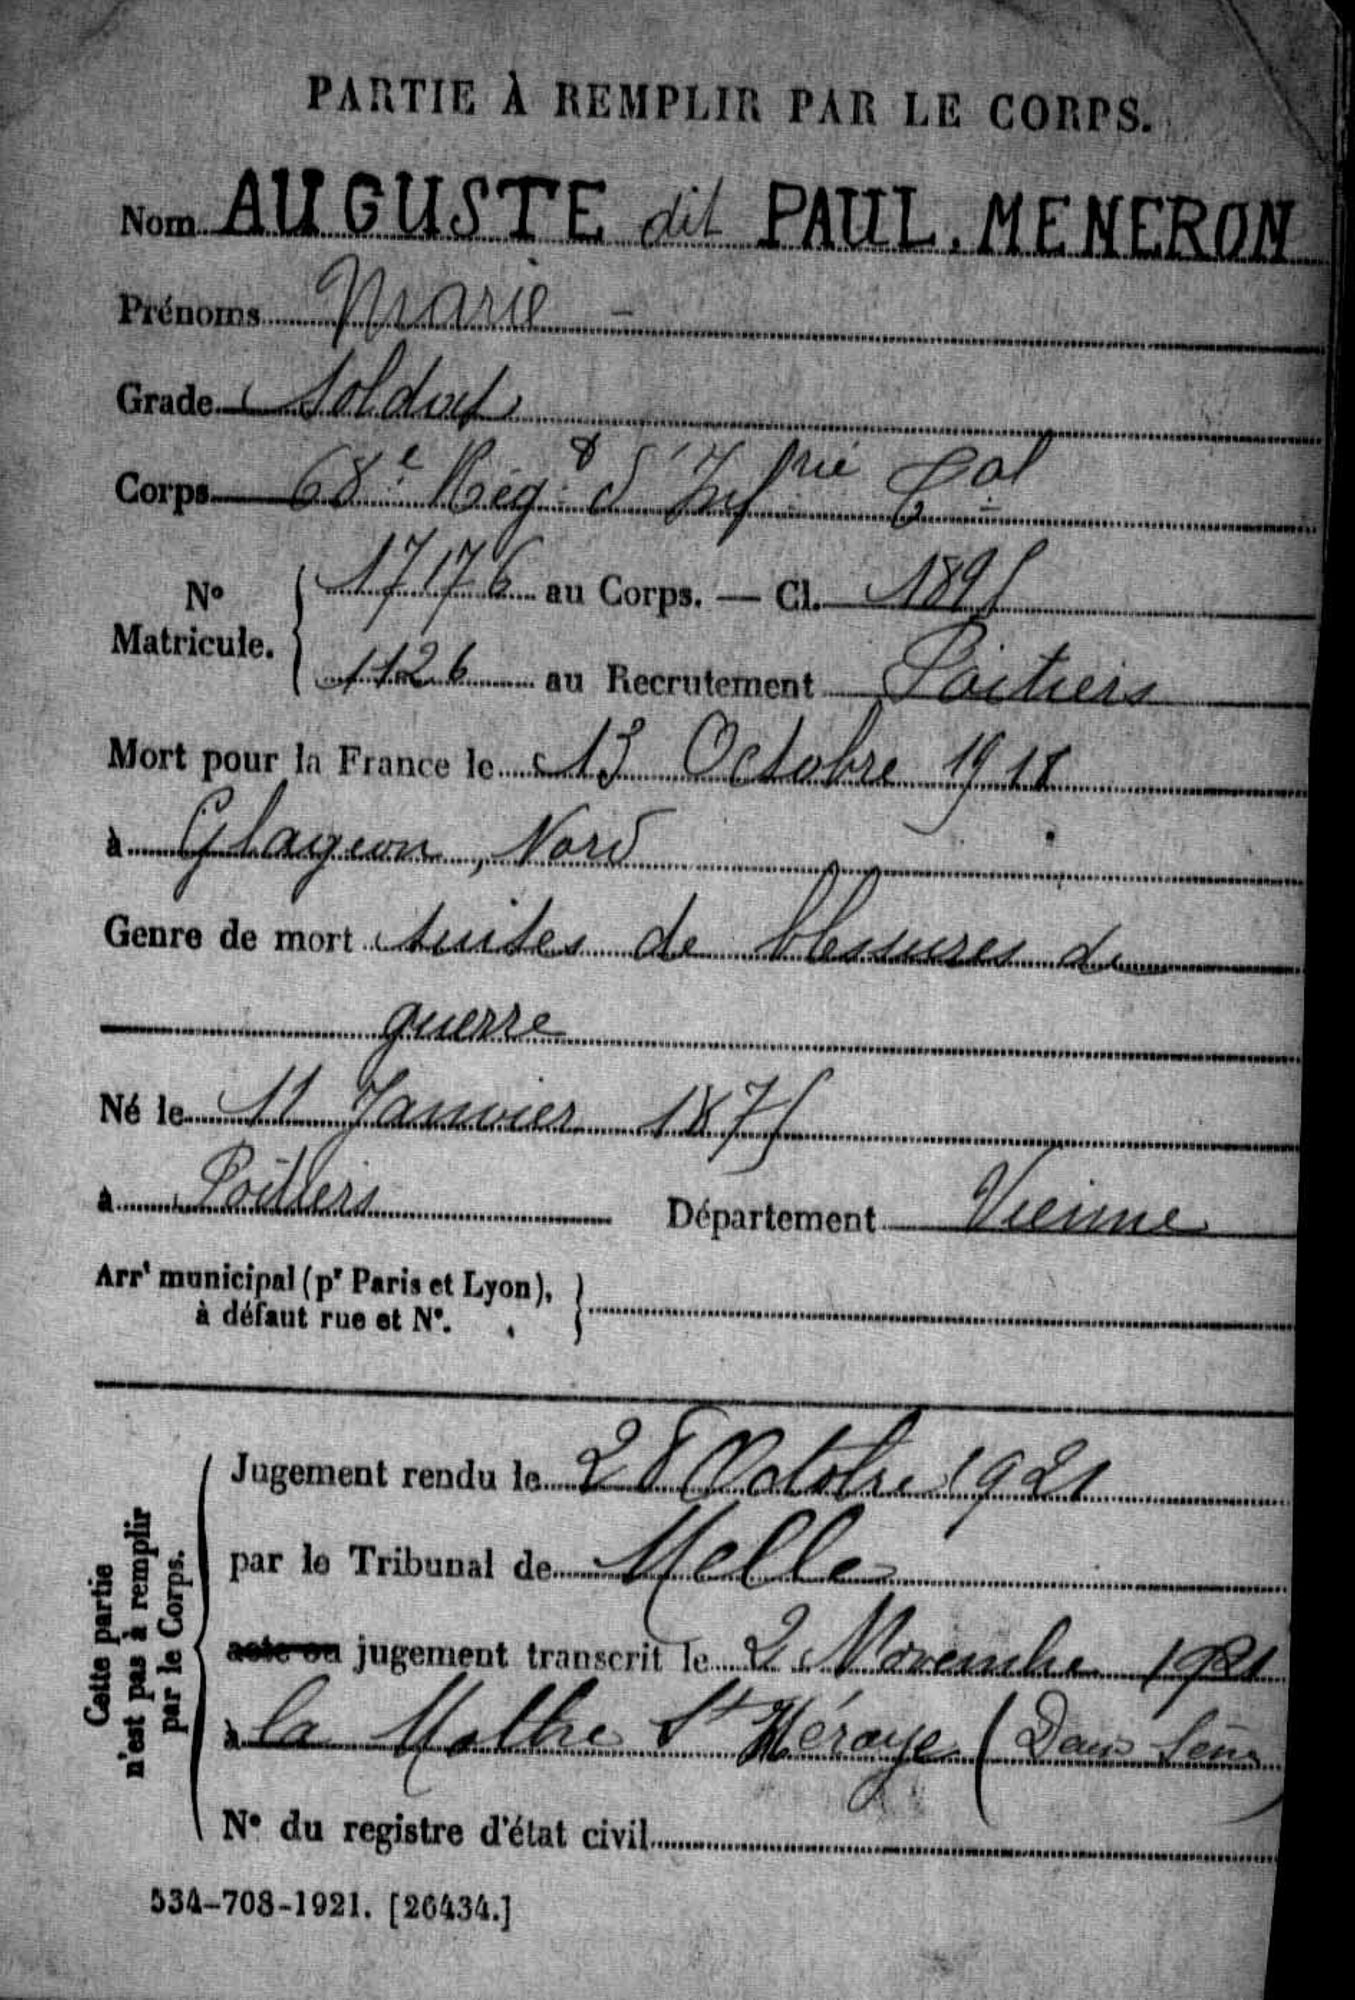 PARTIE À REMPLIR PAR LE CORPS.
Nom AUGUSTE dit PAUL. MENERON
Prénoms Marie -
Grade Soldat
Corps 68e Régt d'Infrie Cal
No Matricule. { 17176 au Corps. — Cl. 1895
1126 au Recrutement Poitiers
Mort pour la France le 13 Octobre 1918
à Glageon, Nord
Genre de mort suites de blessures de
guerre
Né le 11 Janvier 1875
à Poitiers Département Vienne
Arrt municipal (pr Paris et Lyon), }
à défaut rue et No.
Cette partie
n'est pas à remplir
par le Corps.
Jugement rendu le 28 Octobre 1921
par le Tribunal de Melle
acte ou jugement transcrit le 2 Novembre 1921
à la Mothe St Héraye (Deux Sèvres)
No du registre d'état civil
534-708-1921. [26434.]